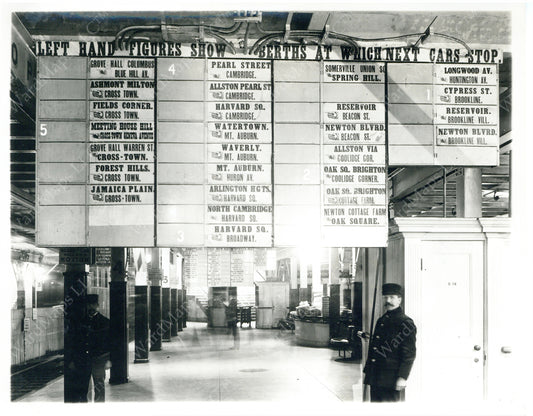 LEFT HAND FIGURES SHOW BERTHS AT WHICH NEXT CARS STOP.
GROVE HALL COLUMBUS
BLUE HILL AV.
ASHMONT MILTON
CROSS TOWN.
FIELDS CORNER.
CROSS TOWN.
5
MEETING HOUSE HILL
GROVE HALL WARREN ST.
CROSS-TOWN.
FOREST HILLS.
CROSS-TOWN.
JAMAICA PLAIN.
CROSS-TOWN.
4
PEARL STREET
CAMBRIDGE.
ALLSTON PEARL ST
CAMBRIDGE.
HARVARD SQ.
CAMBRIDGE.
WATERTOWN.
MT. AUBURN.
WAVERLY.
MT. AUBURN.
MT. AUBURN
HURON AV.
ARLINGTON HGTS.
HARVARD SQ.
NORTH CAMBRIDGE
HARVARD SQ.
HARVARD SQ.
BROADWAY.
SOMERVILLE UNION SQ
SPRING HILL.
RESERVOIR
BEACON ST.
NEWTON BLVRD.
BEACON ST.
ALLSTON VIA
COOLIDGE COR.
2
OAK SQ. BRIGHTON
COOLIDGE CORNER.
OAK SQ. BRIGHTON
COTTAGE FARM.
NEWTON COTTAGE FARM
OAK SQUARE.
LONGWOOD AV.
HUNTINGTON AV.
CYPRESS ST.
BROOKLINE.
1
RESERVOIR.
BROOKLINE VIL.
NEWTON BLVRD.
BROOKLINE VIL.
4
3